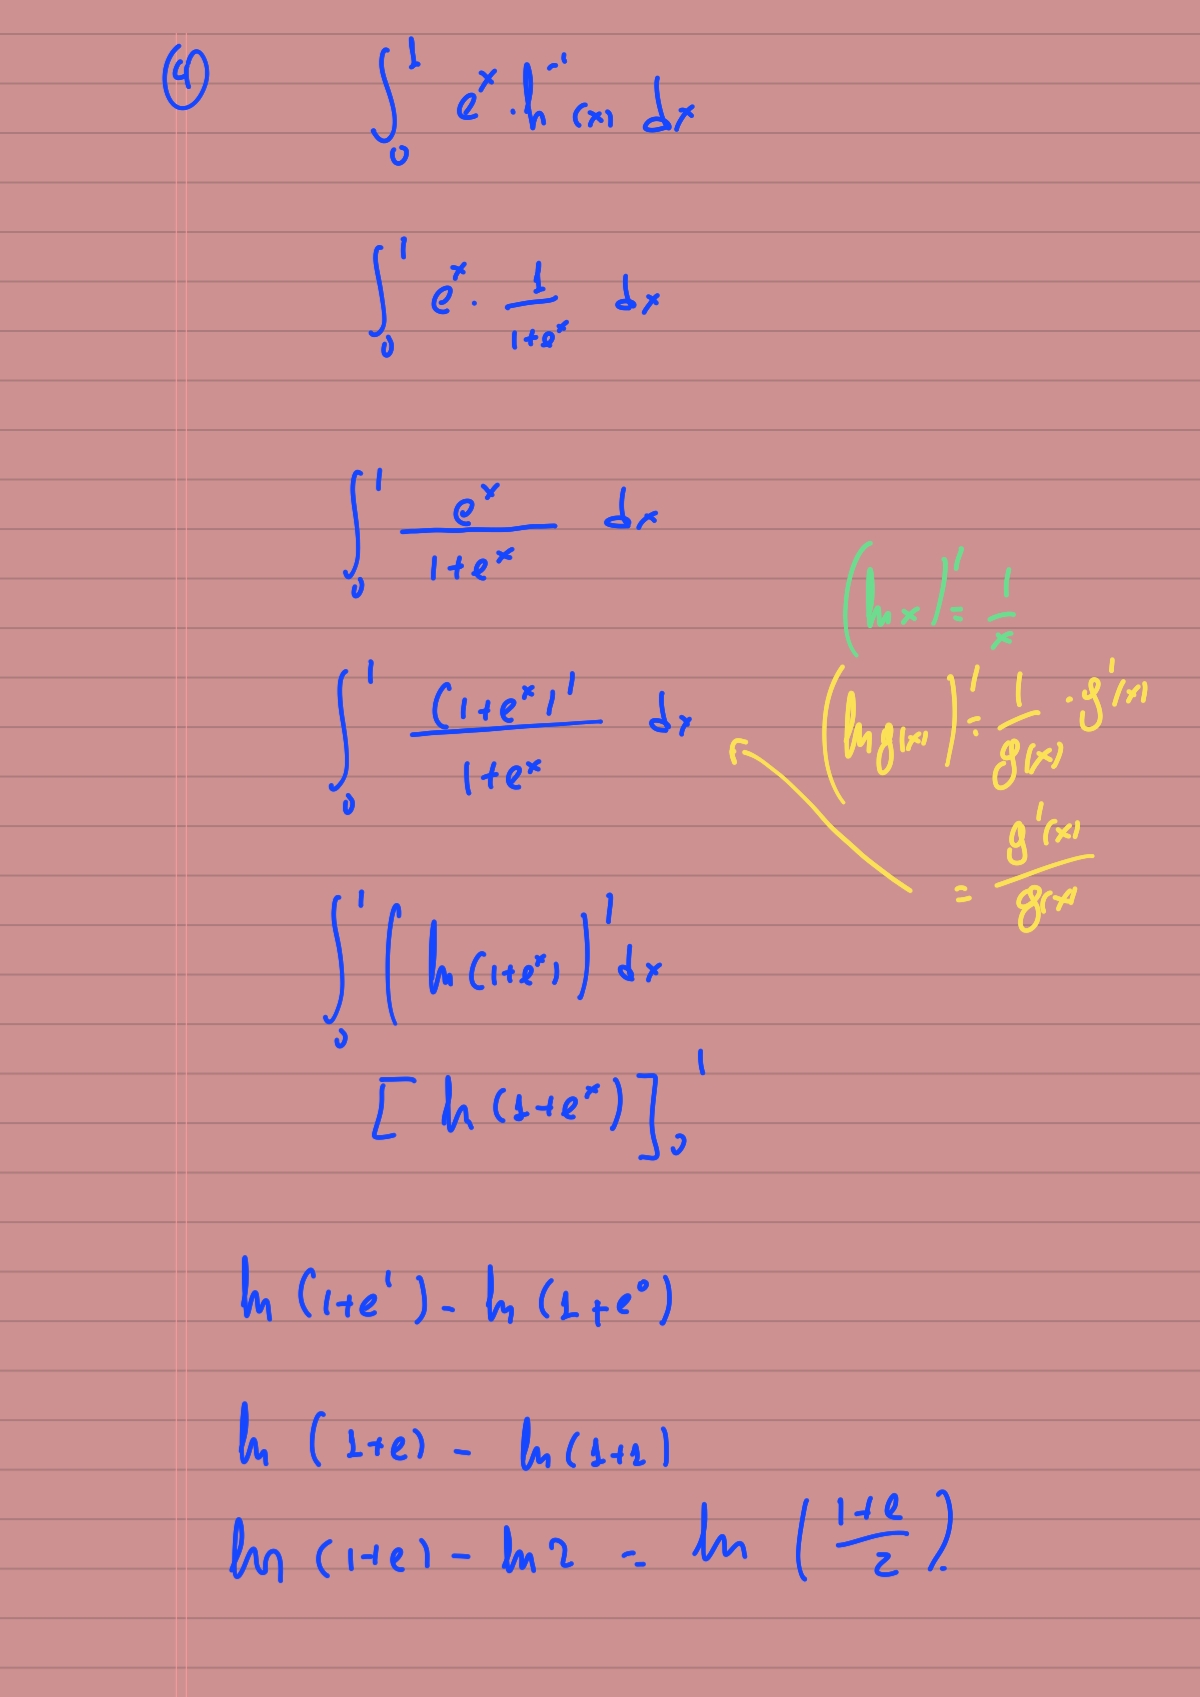 ④ ∫₀¹ eˣ · h⁻¹(x) dx
∫₀¹ eˣ · 1/(1+eˣ) dx
∫₀¹ eˣ/(1+eˣ) dx
(ln x)' = 1/x
∫₀¹ (1+eˣ)'/(1+eˣ) dx
(ln g(x))' = 1/g(x) · g'(x)
= g'(x)/g(x)
∫₀¹ (ln(1+eˣ))' dx
[ln(1+eˣ)]₀¹
ln(1+e¹) - ln(1+e⁰)
ln(1+e) - ln(1+1)
ln(1+e) - ln2 = ln((1+e)/2).